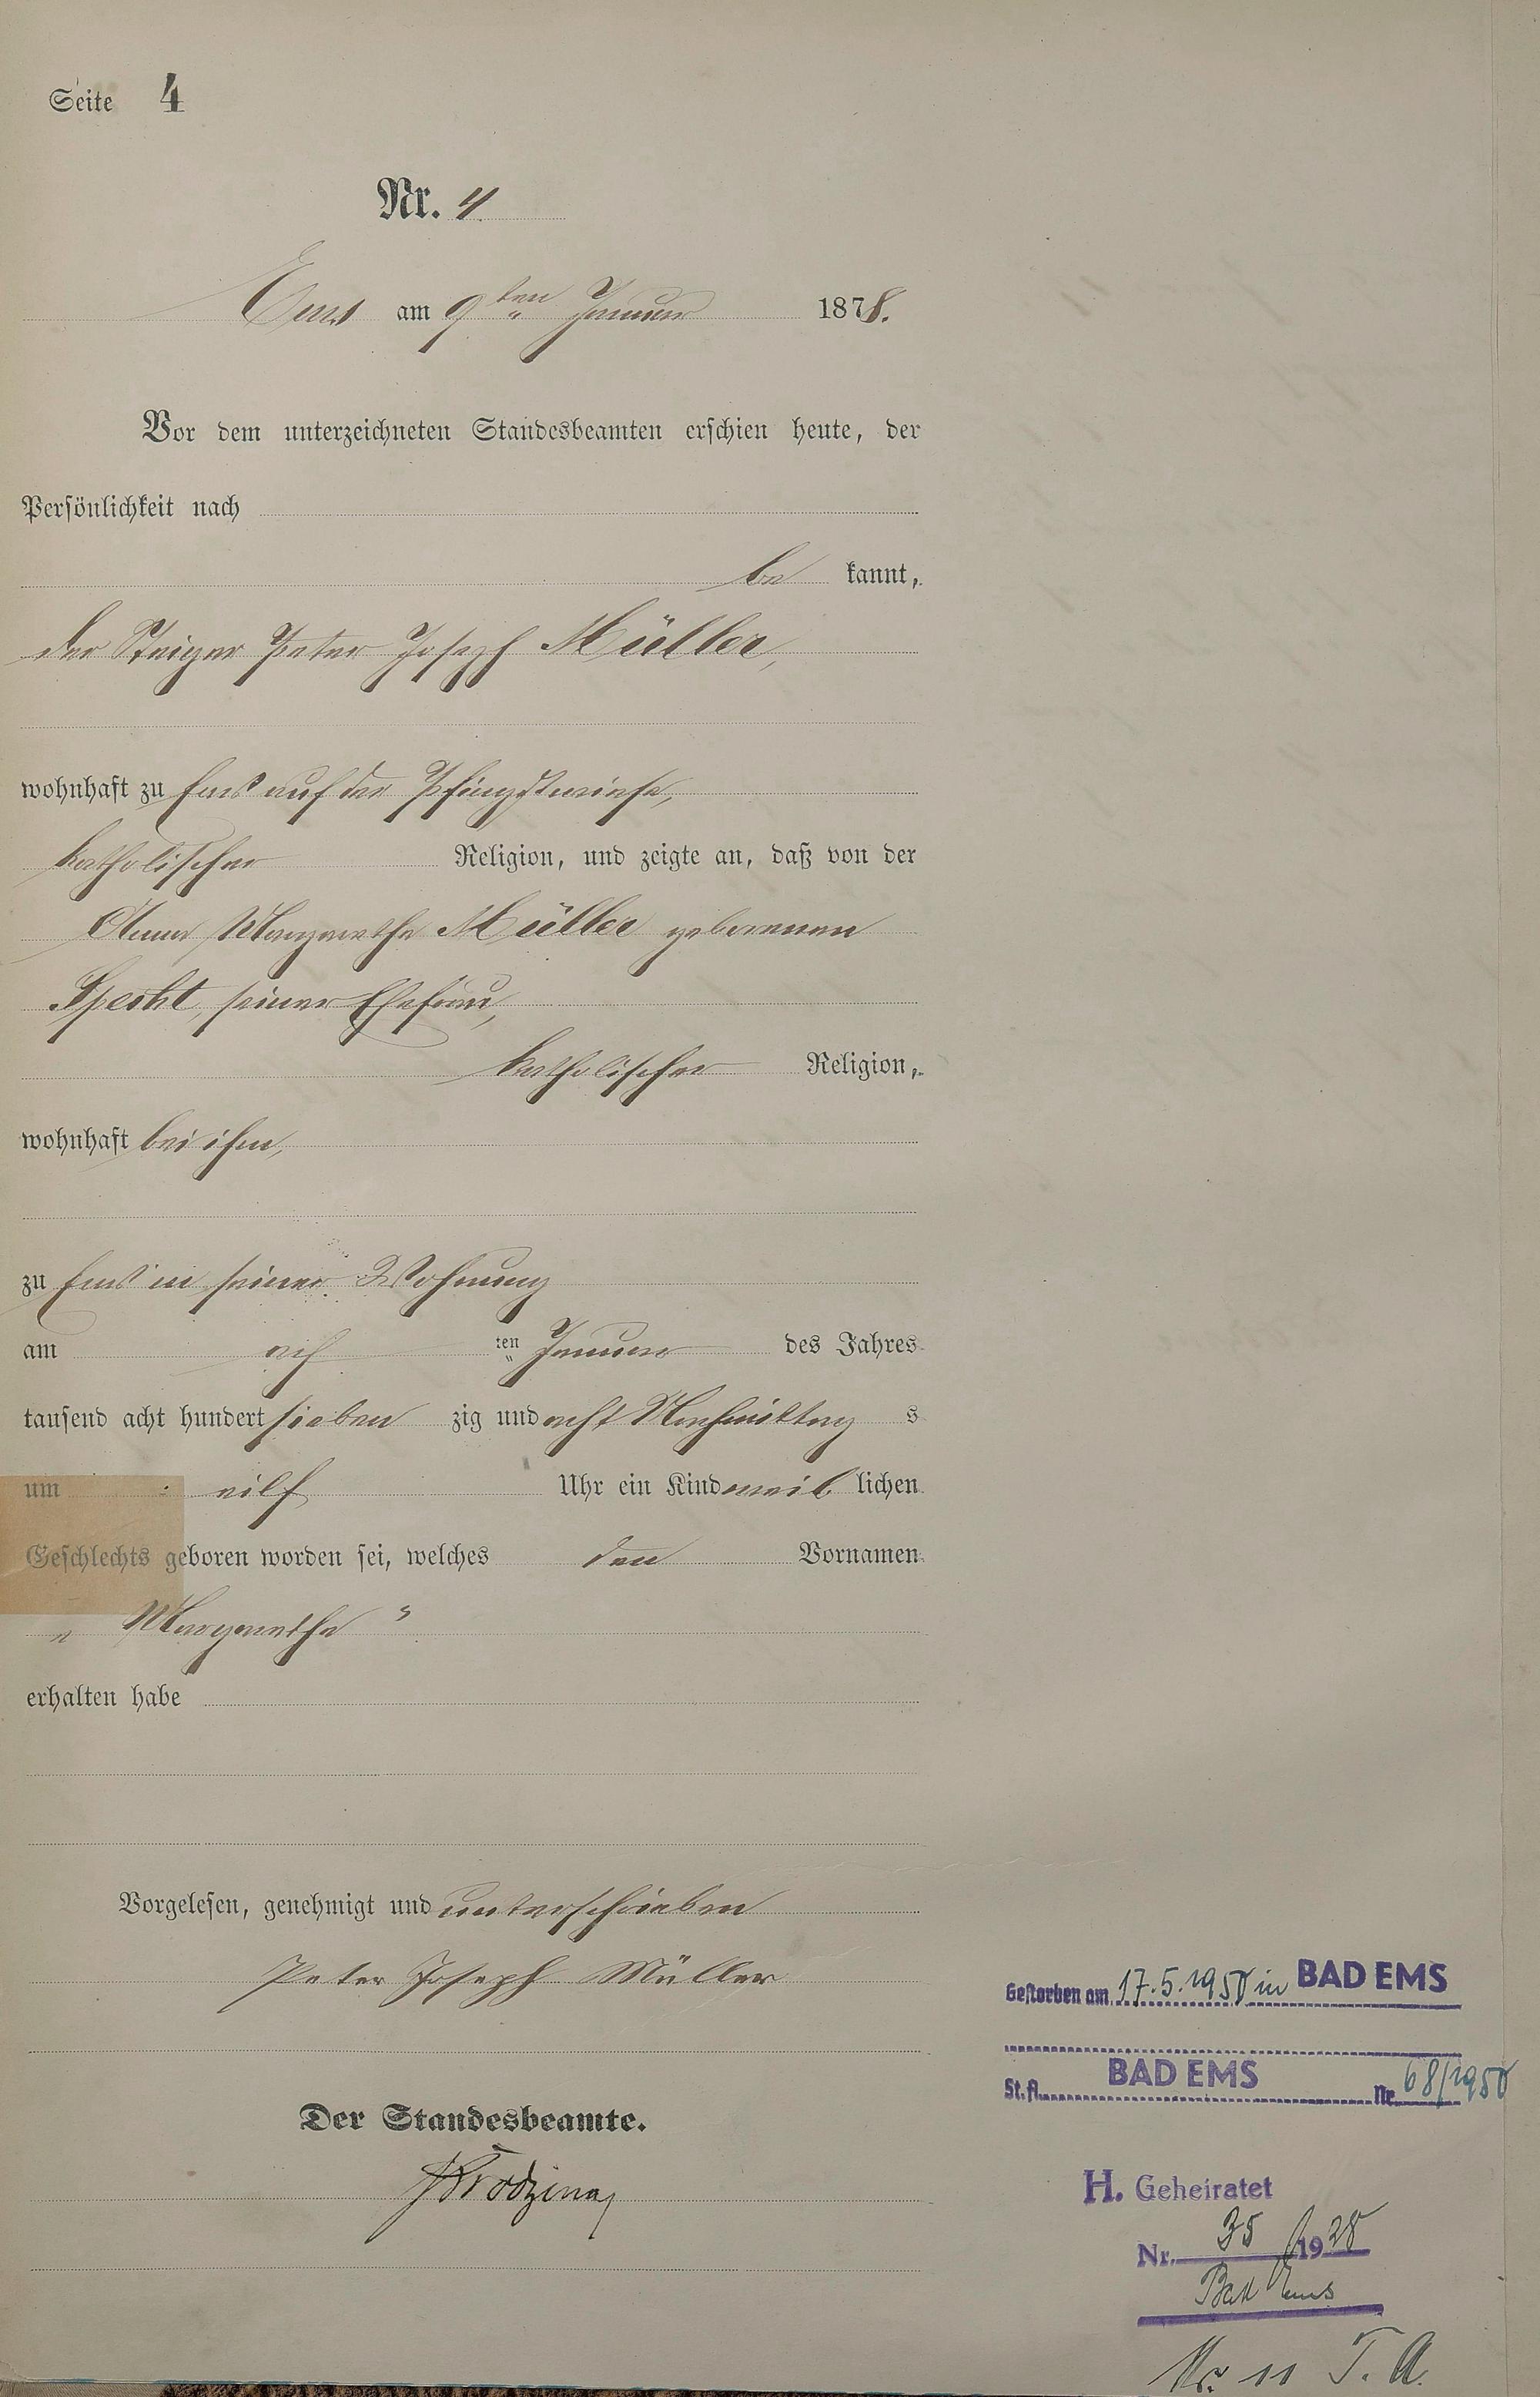 Seite 4
Nr. 4
Ems am 9ten Januar 1878.
Vor dem unterzeichneten Standesbeamten erschien heute, der
Persönlichkeit nach
be kannt,
der Steiger Peter Joseph Müller,
wohnhaft zu Ems auf der Pfingstwiese,
katholischer Religion, und zeigte an, daß von der
Anna Margarethe Müller geborenen
Specht, seiner Ehefrau,
katholischer Religion,
wohnhaft bei ihm,
zu Ems in seiner Wohnung
am ten Januar des Jahres
tausend acht hundert sieben zig und acht Nachmittag s
um eilf Uhr ein Kind weib lichen
Geschlechts geboren worden sei, welches den Vornamen
„ Margarethe "
erhalten habe
Vorgelesen, genehmigt und unterschrieben
Peter Joseph Müller
Der Standesbeamte.
Gestorben am 17.5.1950 in BAD EMS
St. A. BAD EMS Nr. 68/1950
H. Geheiratet
Nr. 35 /1928
Bad Ems
Nr. 11 T. A.